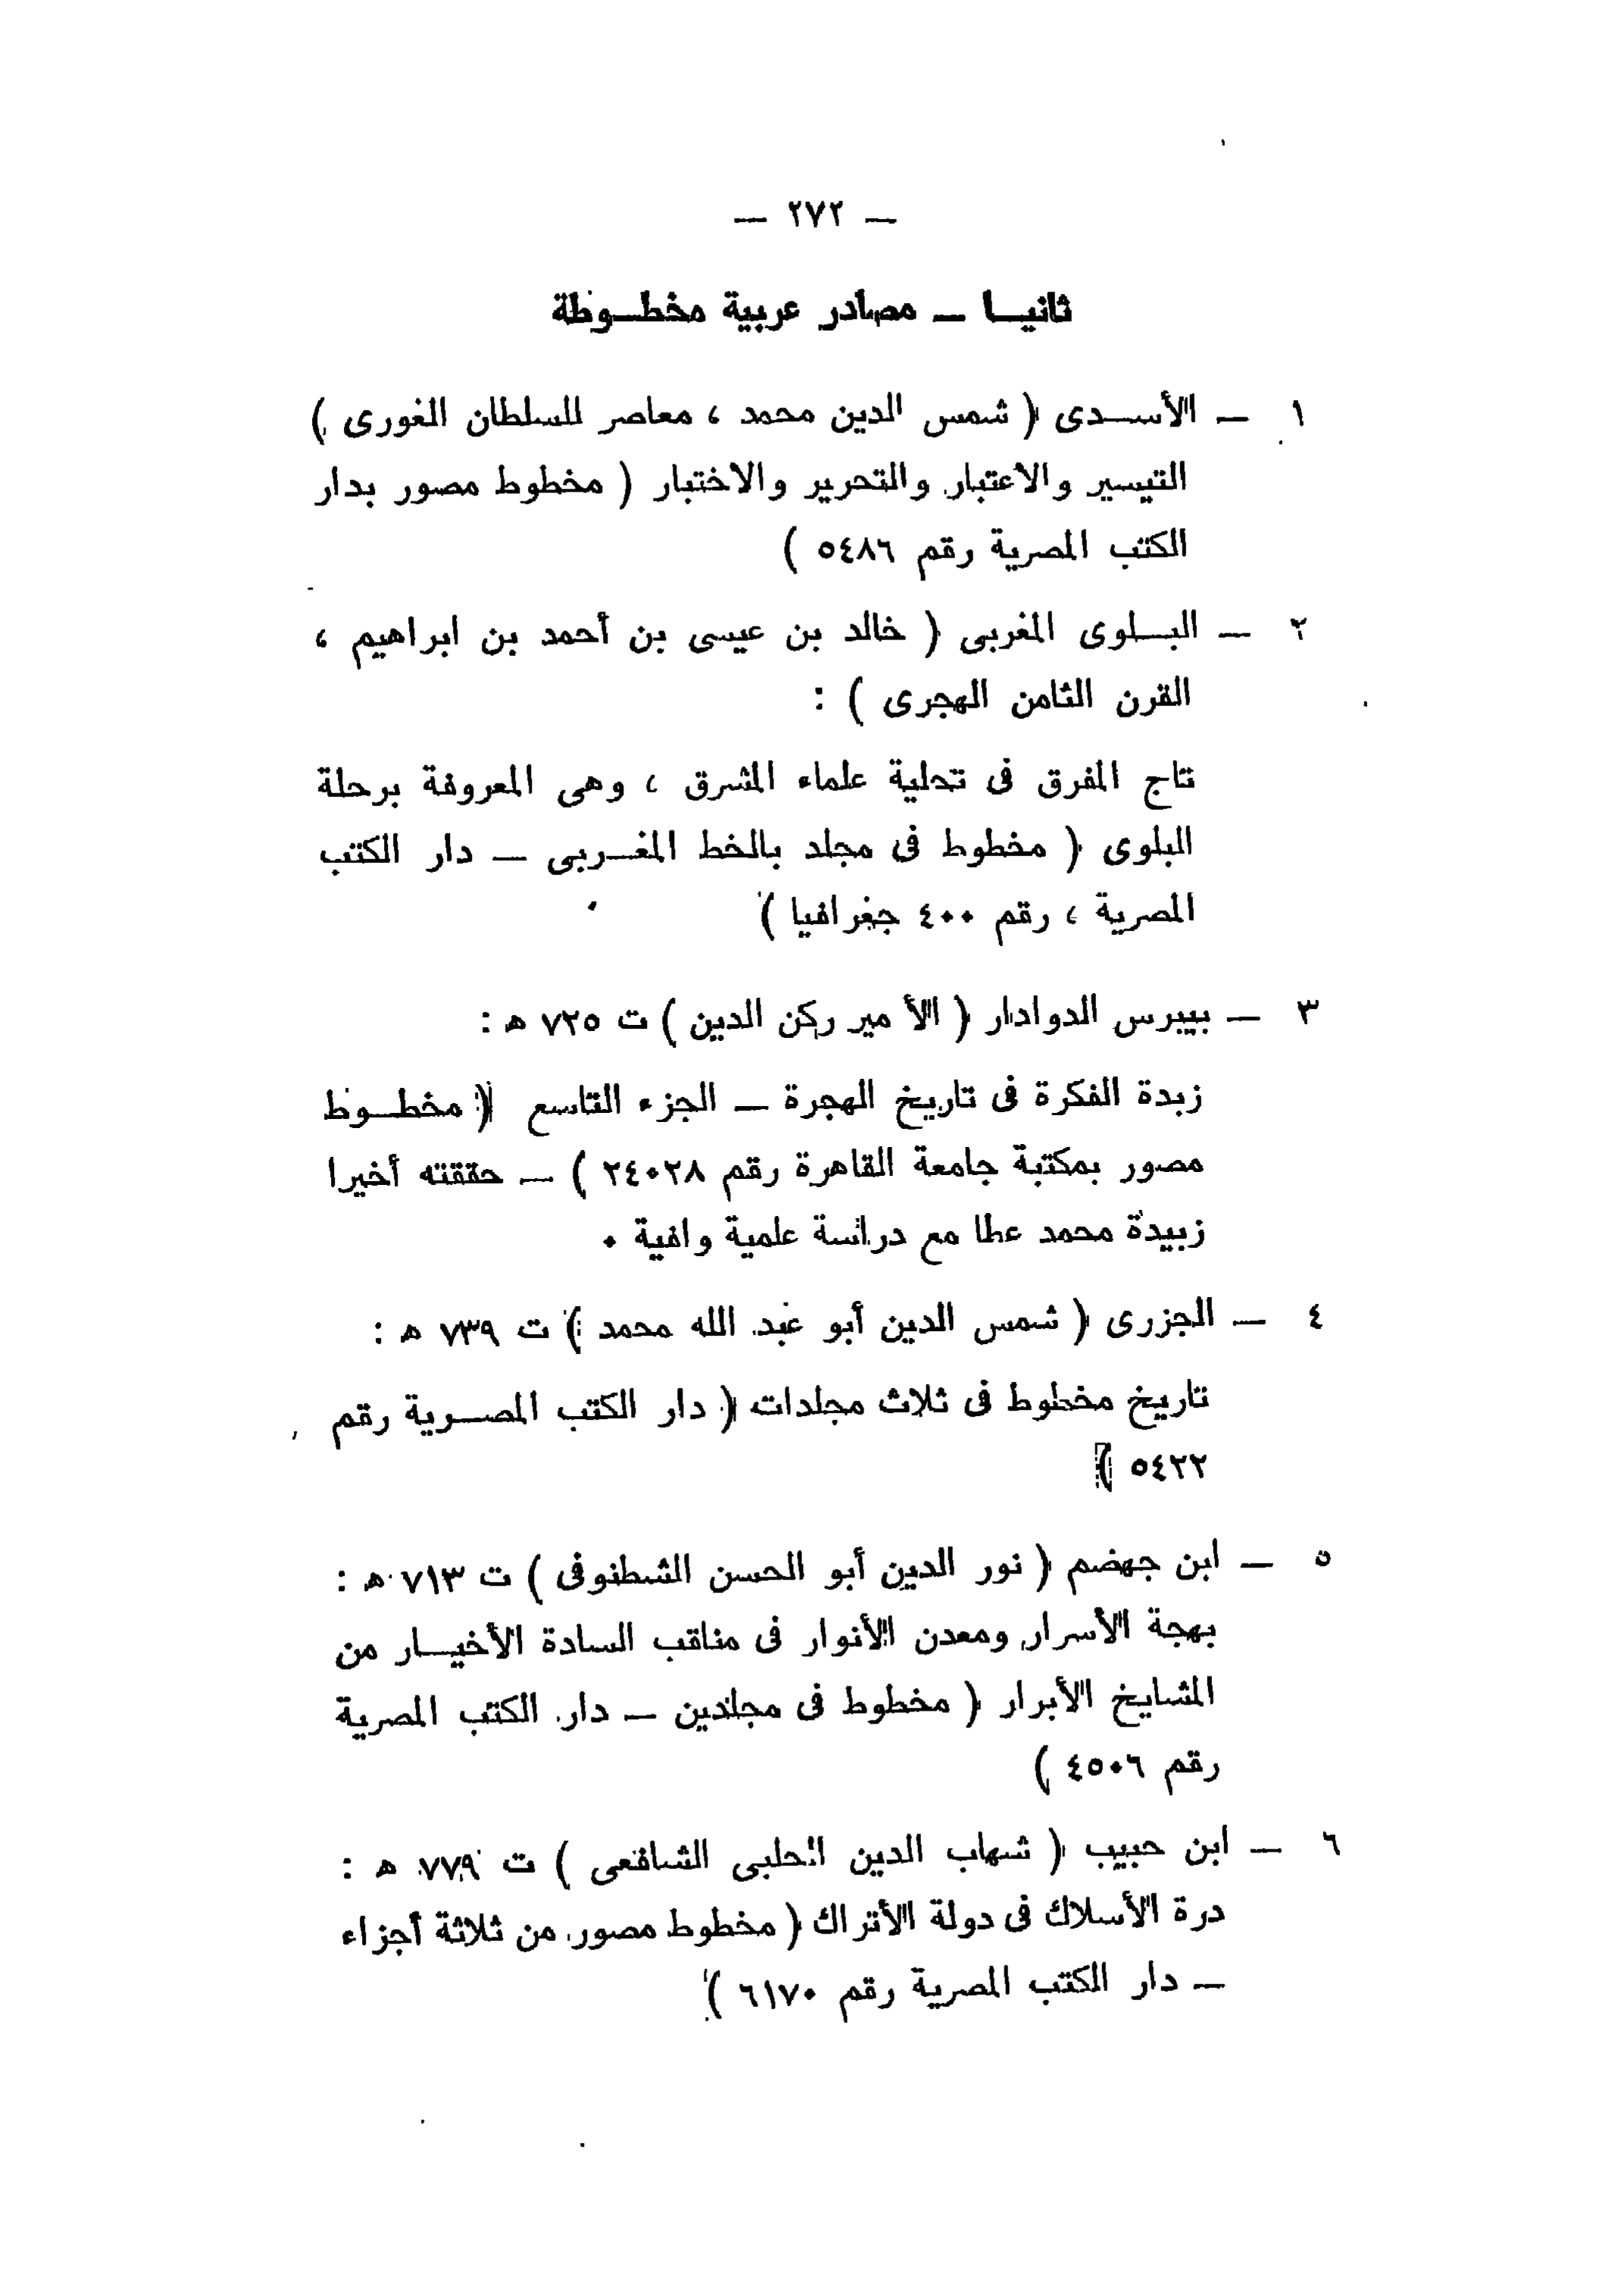 — ٢٧٢ —
ثانيـا — مصادر عربية مخطـوطة
١ — الأسـدى ( شمس الدين محمد ، معاصر للسلطان الغورى )
التيسير والاعتبار والتحرير والاختبار ( مخطوط مصور بدار
الكتب المصرية رقم ٥٤٨٦ )
٢ — البـلوى المغربى ( خالد بن عيسى بن أحمد بن ابراهيم ،
القرن الثامن الهجرى ) :
تاج المفرق فى تحلية علماء المشرق ، وهى المعروفة برحلة
البلوى ( مخطوط فى مجلد بالخط المغـربى — دار الكتب
المصرية ، رقم ٤٠٠ جغرافيا )
٣ — بيبرس الدوادار ( الأمير ركن الدين ) ت ٧٢٥ ه :
زبدة الفكرة فى تاريخ الهجرة — الجزء التاسع ( مخطـوط
مصور بمكتبة جامعة القاهرة رقم ٢٤٠٢٨ ) — حققته أخيرا
زبيدة محمد عطا مع دراسة علمية وافية ٠
٤ — الجزرى ( شمس الدين أبو عبد الله محمد ) ت ٧٣٩ ه :
تاريخ مخطوط فى ثلاث مجلدات ( دار الكتب المصـرية رقم
٥٤٢٢ )
٥ — ابن جهضم ( نور الدين أبو الحسن الشطنوفى ) ت ٧١٣ ه :
بهجة الأسرار ومعدن الأنوار فى مناقب السادة الأخيـار من
المشايخ الأبرار ( مخطوط فى مجلدين — دار الكتب المصرية
رقم ٤٥٠٦ )
٦ — ابن حبيب ( شهاب الدين الحلبى الشافعى ) ت ٧٧٩ ه :
درة الأسلاك فى دولة الأتراك ( مخطوط مصور من ثلاثة أجزاء
— دار الكتب المصرية رقم ٦١٧٠ )